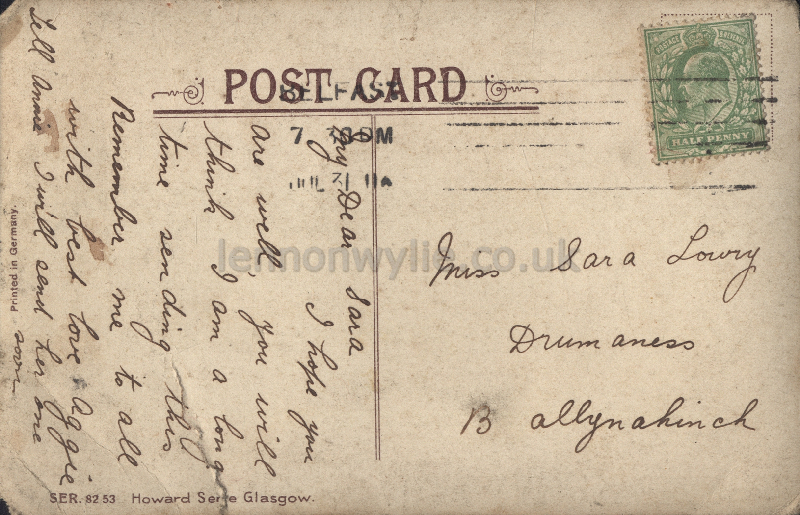 POST CARD
BELFAST
7
PM
JUL 31 11
POSTAGE REVENUE
HALF PENNY
My Dear Sara
I hope you
are well, you will
think I am a long
time sending this
Remember me to all
with best love Aggie
Tell Annie I will send her one
soon
Miss Sara Lowry
Drumaness
Ballynahinch
Printed in Germany.
SER. 8253 Howard Glasgow.
lennonwylie.co.uk